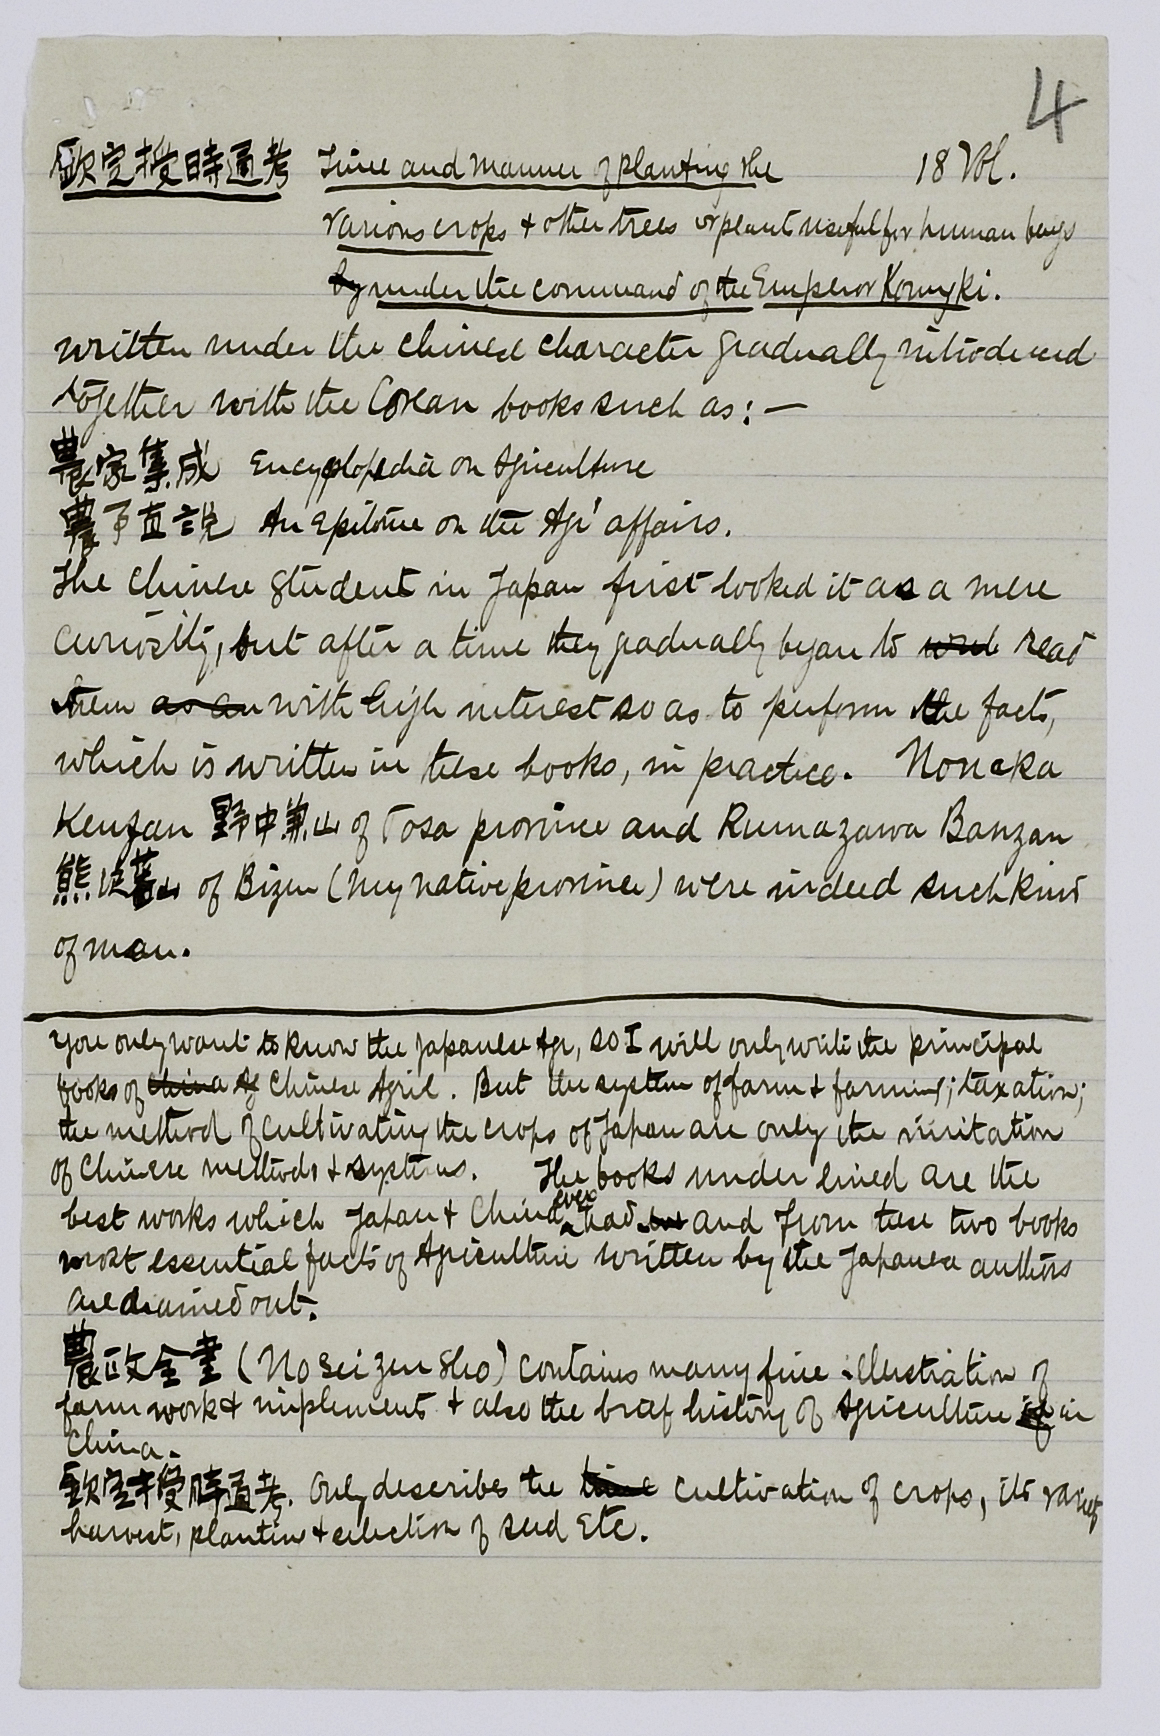 4
欽定授時通考 Time and manner of planting the 18 Vol.
various crops + other trees or plant useful for human beings
by under the command of the Emperor Kowyki.
written under the chinese character gradually introduced
together with the Corean books such as: —
農家集成 Encyclopedia on Agriculture
農事直説 An Epitome on the Agr' affairs.
The Chinese Student in Japan first looked it as a mere
curiosity, but after a time they gradually began to read
them as an with high interest so as to perform the facts,
which is written in these books, in practice. Nonaka
Kenzan 野中兼山 of Tosa province and Kumazawa Banzan
熊沢蕃山 of Bizen (my native province) were indeed such kind
of man.
You only want to know the Japanese Agr, so I will only write the principal
books of China of Chinese Agril. But the system of farm + farming; taxation;
the method of cultivating the crops of Japan are only the imitation
of Chinese methods + systems. The books under lined are the
best works which Japan + China ever had and from these two books
most essential facts of Agriculture written by the Japanese authors
are drained out.
農政全書 (No sei zen sho) contains many fine illustration of
farm work + implements + also the brief history of Agriculture of in
China.
欽定授時通考. Only describes the time cultivation of crops, its variety
harvest, planting + selection of seed etc.